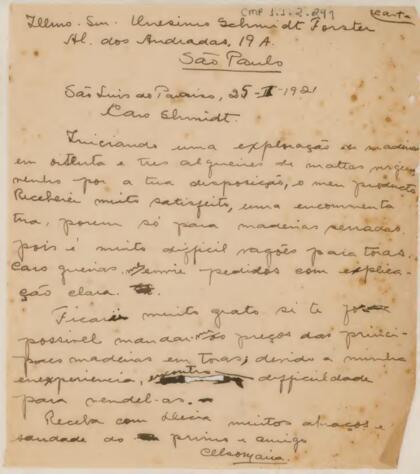 CMP 1.1.2.291
Carta
Illmo. Snr. Unesimo Schmidt Forster
Al. dos Andradas, 19 A.
São Paulo
São Luis do Paraiso, 25-II-1921
Caro Schmidt.
Iniciando uma exploração de madeiras
em oitenta e tres alqueires de mattas
venho por a tua disposição, o meu producto
Receberei muito satisfeito, uma encommenta
tua, porem só para madeiras serradas
pois é muito difficil vagões para toras.
Caso queiras, envie pedidos com explica-
ção clara.
Ficarei muito grato si te for
possivel mandar os preços das princi-
paes madeiras em toras, devido a minha
inexperiencia, difficuldade
para vendel-as.-
Receba com muitos abraços e
saudade do primo e amigo